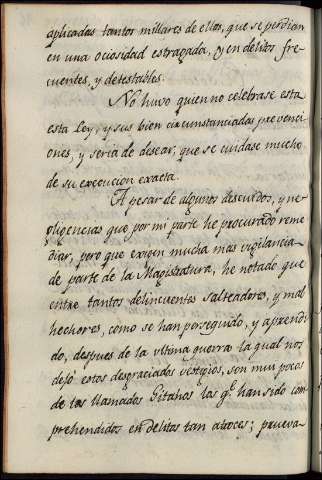 aplicadas tantos millares de ellos, que se perdian
en una ociosidad estragada, y en delitos fre
cuentes, y detestables.
No huvo quien no celebrase esta
esta ley, y sus bien circunstanciadas prevenci
ones, y seria de desear, que se cuidase mucho
de su execucion exacta.
A pesar de algunos descuidos, y ne
gligencias que por mi parte he procurado reme
diar, pero que exigen mucha mas vigilancia
de parte de la Magistratura, he notado que
entre tantos delincuentes salteadores, y mal
hechores, como se han perseguido, y aprendi
do, despues de la ultima guerra la qual nos
dejó estos desgraciados vestigios, son muy pocos
de los llamados Gitanos los q.e han sido com
prehendidos en delitos tan atroces; prueva